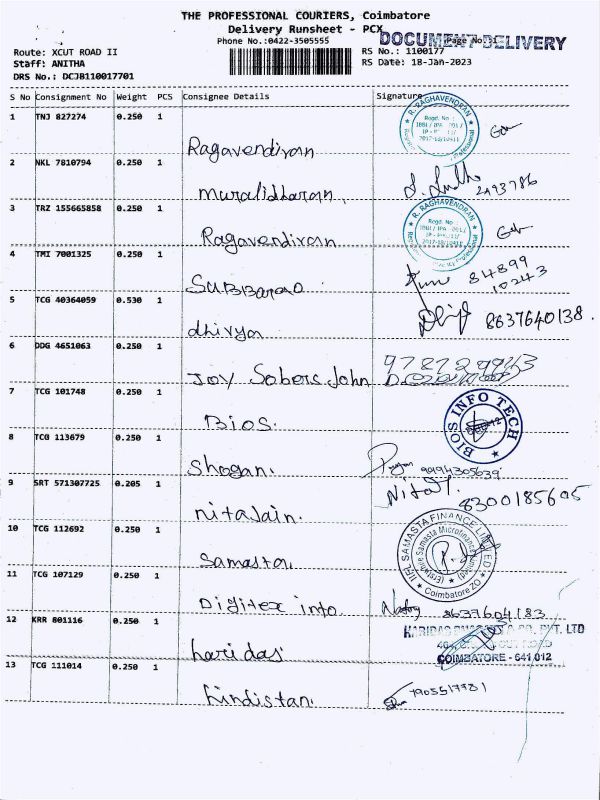 THE PROFESSIONAL COURIERS, Coimbatore
Delivery Runsheet - PCX
DOCUMENT DELIVERY
Phone No.:0422-3505555
Route: XCUT ROAD II
RS No.: 1100177
Staff: ANITHA
RS Date: 18-Jan-2023
DRS No.: DCJB110017701
S No Consignment No Weight PCS Consignee Details Signature
1 TNJ 827274 0.250 1 Ragavendiran
R. RAGHAVENDRAN
2 NKL 7810794 0.250 1 muralidharan
3 TRZ 155665858 0.250 1 Ragavendiran
R. RAGHAVENDRAN
4 TMI 7001325 0.250 1 SUBBarao 84899 10243
5 TCG 40364059 0.530 1 dhivya 8637640138.
6 DDG 4651063 0.250 1 Joy Sobers John
7 TCG 101748 0.250 1 Bios.
BIOS INFO TECH
8 TCG 113679 0.250 1 Shogan. 9994305639
9 SRT 571307725 0.205 1 nitaJain. Nita J. 8300185605
10 TCG 112692 0.250 1 Samasta
IIFL SAMASTA FINANCE LIMITED
(Erstwhile Samasta Microfinance Limited)
Coimbatore ZO
11 TCG 107129 0.250 1 Digitex info 8637604183
12 KRR 801116 0.250 1 haridas
HARIDAS PVT. LTD
COIMBATORE - 641 012
13 TCG 111014 0.250 1 hindistan. 7905517781